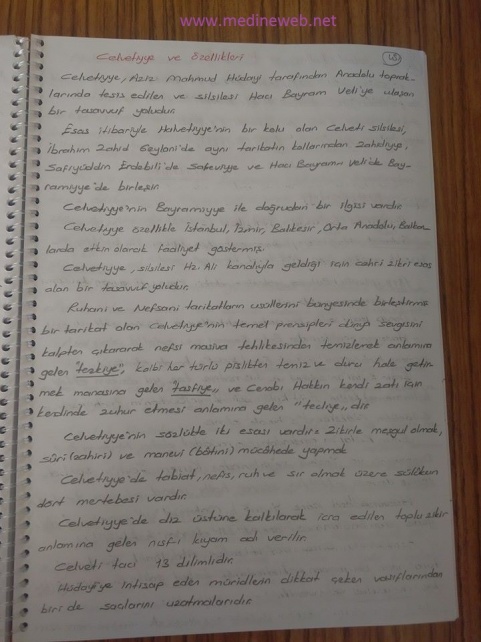 www.medineweb.net
Celvetiyye ve özellikleri
Celvetiyye, Aziz Mahmud Hüdayi tarafından Anadolu toprak-
larında tesis edilen ve silsilesi Hacı Bayram Veli'ye ulaşan
bir tasavvuf yoludur.
Esas itibariyle Halvetiyye'nin bir kolu olan Celveti silsilesi,
İbrahim Zahid Geylani'de aynı tarikatin kollarından Zahidiyye,
Safiyüddin Erdebili'de Safeviyye ve Hacı Bayramı Veli'de Bay-
ramiyye'de birleşir.
Celvetiyye'nin Bayramiyye ile doğrudan bir ilgisi vardır.
Celvetiyye özellikle İstanbul, İzmir, Balıkesir, Orta Anadolu, Balkan-
larda etkin olarak faaliyet göstermiş.
Celvetiyye, silsilesi Hz. Ali kanalıyla geldiği için cehri zikri esas
alan bir tasavvuf yoludur.
Ruhani ve Nefsani tarikatların usullerini bünyesinde birleştirmiş
bir tarikat olan Celvetiyye'nin temel prensipleri dünya sevgisini
kalpten çıkararak nefsi masiva tehlikesinden temizlemek anlamına
gelen "tezkiye", kalbi her türlü pislikten temiz ve duru hale getir-
mek manasına gelen "tasfiye" ve Cenabı Hakkın kendi zatı için
kendinde zuhur etmesi anlamına gelen "tecliye" dir.
Celvetiyye'nin sözlükte iki esası vardır: Zikirle meşgul olmak,
sûri (zahiri) ve manevi (bâtıni) mücâhede yapmak
Celvetiyye'de tabiat, nefs, ruh ve sır olmak üzere sülûkun
dört mertebesi vardır.
Celvetiyye'de diz üstüne kalkılarak icra edilen toplu zikir
anlamına gelen nısf-ı kıyam adı verilir.
Celveti tacı 13 dilimlidir.
Hüdayi'ye intisap eden müridlerin dikkat çeken vasıflarından
biri de saçlarını uzatmalarıdır.